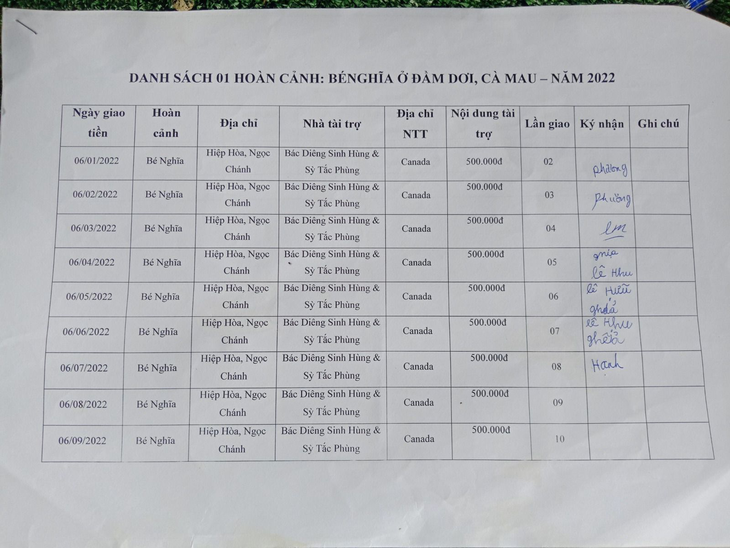 DANH SÁCH 01 HOÀN CẢNH: BÉNGHĨA Ở ĐẦM DƠI, CÀ MAU – NĂM 2022
Ngày giao tiền Hoàn cảnh Địa chỉ Nhà tài trợ Địa chỉ NTT Nội dung tài trợ Lần giao Ký nhận Ghi chú
06/01/2022 Bé Nghĩa Hiệp Hòa, Ngọc Chánh Bác Diêng Sinh Hùng & Sỳ Tắc Phùng Canada 500.000đ 02 phương
06/02/2022 Bé Nghĩa Hiệp Hòa, Ngọc Chánh Bác Diêng Sinh Hùng & Sỳ Tắc Phùng Canada 500.000đ 03 phương
06/03/2022 Bé Nghĩa Hiệp Hòa, Ngọc Chánh Bác Diêng Sinh Hùng & Sỳ Tắc Phùng Canada 500.000đ 04
06/04/2022 Bé Nghĩa Hiệp Hòa, Ngọc Chánh Bác Diêng Sinh Hùng & Sỳ Tắc Phùng Canada 500.000đ 05 lê
06/05/2022 Bé Nghĩa Hiệp Hòa, Ngọc Chánh Bác Diêng Sinh Hùng & Sỳ Tắc Phùng Canada 500.000đ 06 lê Hữu
06/06/2022 Bé Nghĩa Hiệp Hòa, Ngọc Chánh Bác Diêng Sinh Hùng & Sỳ Tắc Phùng Canada 500.000đ 07 lê
06/07/2022 Bé Nghĩa Hiệp Hòa, Ngọc Chánh Bác Diêng Sinh Hùng & Sỳ Tắc Phùng Canada 500.000đ 08 Hạnh
06/08/2022 Bé Nghĩa Hiệp Hòa, Ngọc Chánh Bác Diêng Sinh Hùng & Sỳ Tắc Phùng Canada 500.000đ 09
06/09/2022 Bé Nghĩa Hiệp Hòa, Ngọc Chánh Bác Diêng Sinh Hùng & Sỳ Tắc Phùng Canada 500.000đ 10